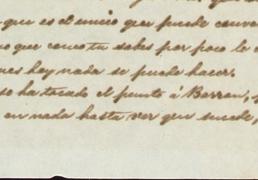 que es el unico que puede conve
o que como tu sabes por poco le
ues hoy nada se puede hacer.
se ha tocado el punto á Barran,
en nada hasta ver que sucede,